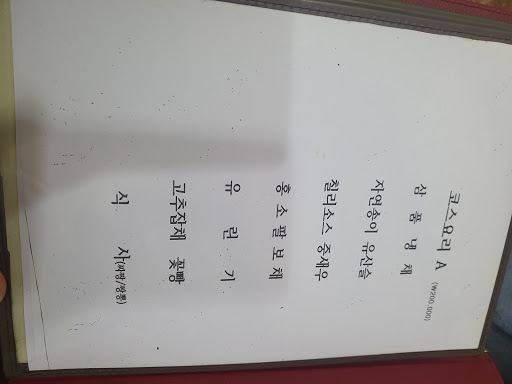 코스요리 A (₩200,000)
삼 품 냉 채
자연송이 유산슬
칠리소스 중새우
홍 소 팔 보 채
유 린 기
고추잡채 꽃빵
식 사(짜장/짬뽕)